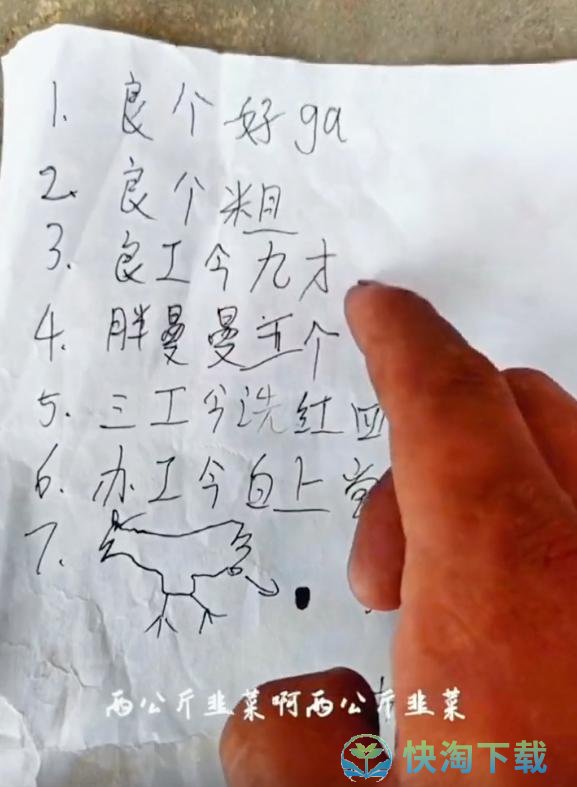 1. 良个好ga
2. 良个粗
3. 良工今九才
4. 胖曼曼五个
5. 三工今洗红四
6. 办工今白上堂
7.
两公斤韭菜啊两公斤韭菜
快淘下载